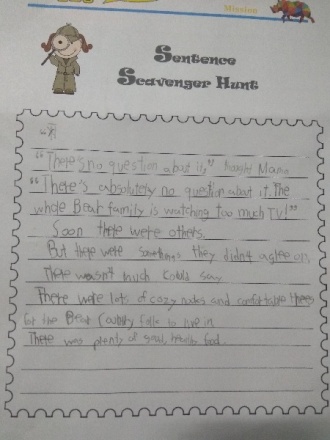 Mission
Sentence
Scavenger Hunt
"There's no question about it,"
"There's absolutely no question about it. The
whole Bear family is watching too much TV!"
Soon there were others.
But there were somethings they didn't agree on.
There wasn't much could say
There were lots of cozy nooks and comfortable trees
for the Bear Country folks to live in
There was plenty of good,